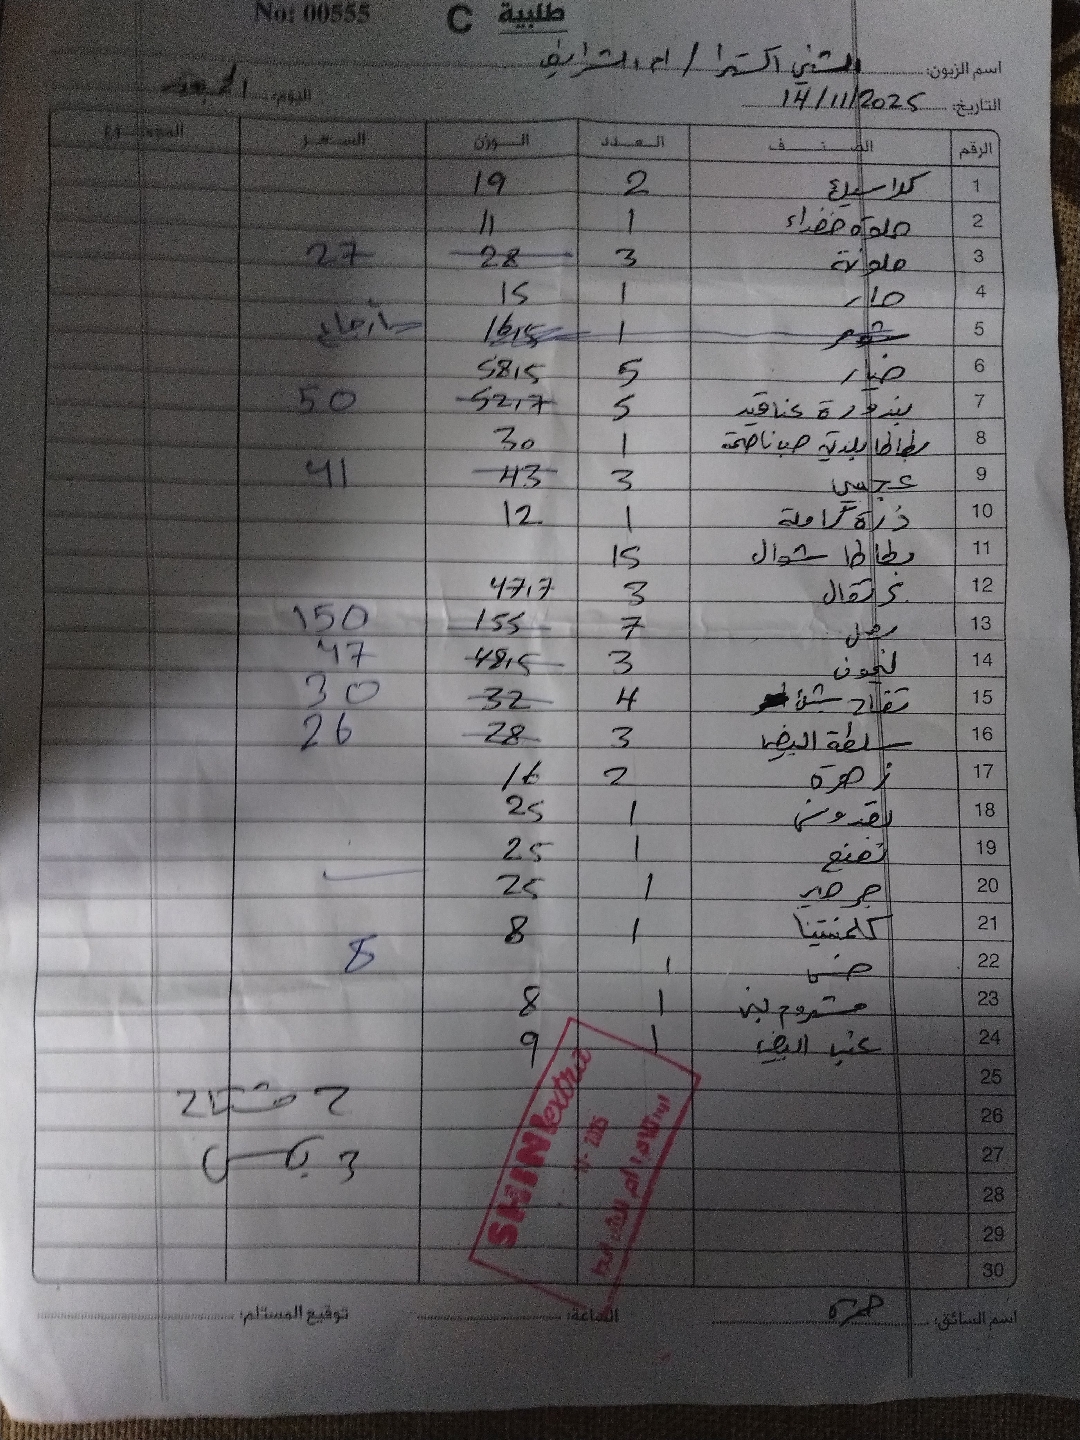 No: 00555 C طلبية
اسم الزبون: الشني اكسترا / ام الشرايط
التاريخ: 14/11/2025 اليوم: الجمعة
الرقم الصنف العدد الوزن السعر المجموع
1 كلاسيك 2 19
2 حلوة خضراء 1 11
3 ملونة 3 28 27
4 حار 1 15
5 شومر 1 16,5 أرجاع
6 خيار 5 58,5
7 بندورة عناقيد 5 52,7 50
8 بطاطا بلدية حبة ناعمة 1 30
9 عجمي 3 43 41
10 ذرة كاملة 1 12
11 بطاطا شوال 15
12 برتقال 3 47,7
13 بصل 7 155 150
14 ليمون 3 48,5 47
15 تفاح 4 32 30
16 سلطة ابيض 3 28 26
17 زهرة 2 16
18 بقدونس 1 25
19 نعنع 1 25
20 جرجير 1 25
21 كلمنتينا 1 8
22 خس 1 8
23 مشروم بني 1 8
24 عنب ابيض 1 9
25
26 2
27 3
28
29
30
SHINI extra
اسم السائق: حمزة الساعة: توقيع المستلم: